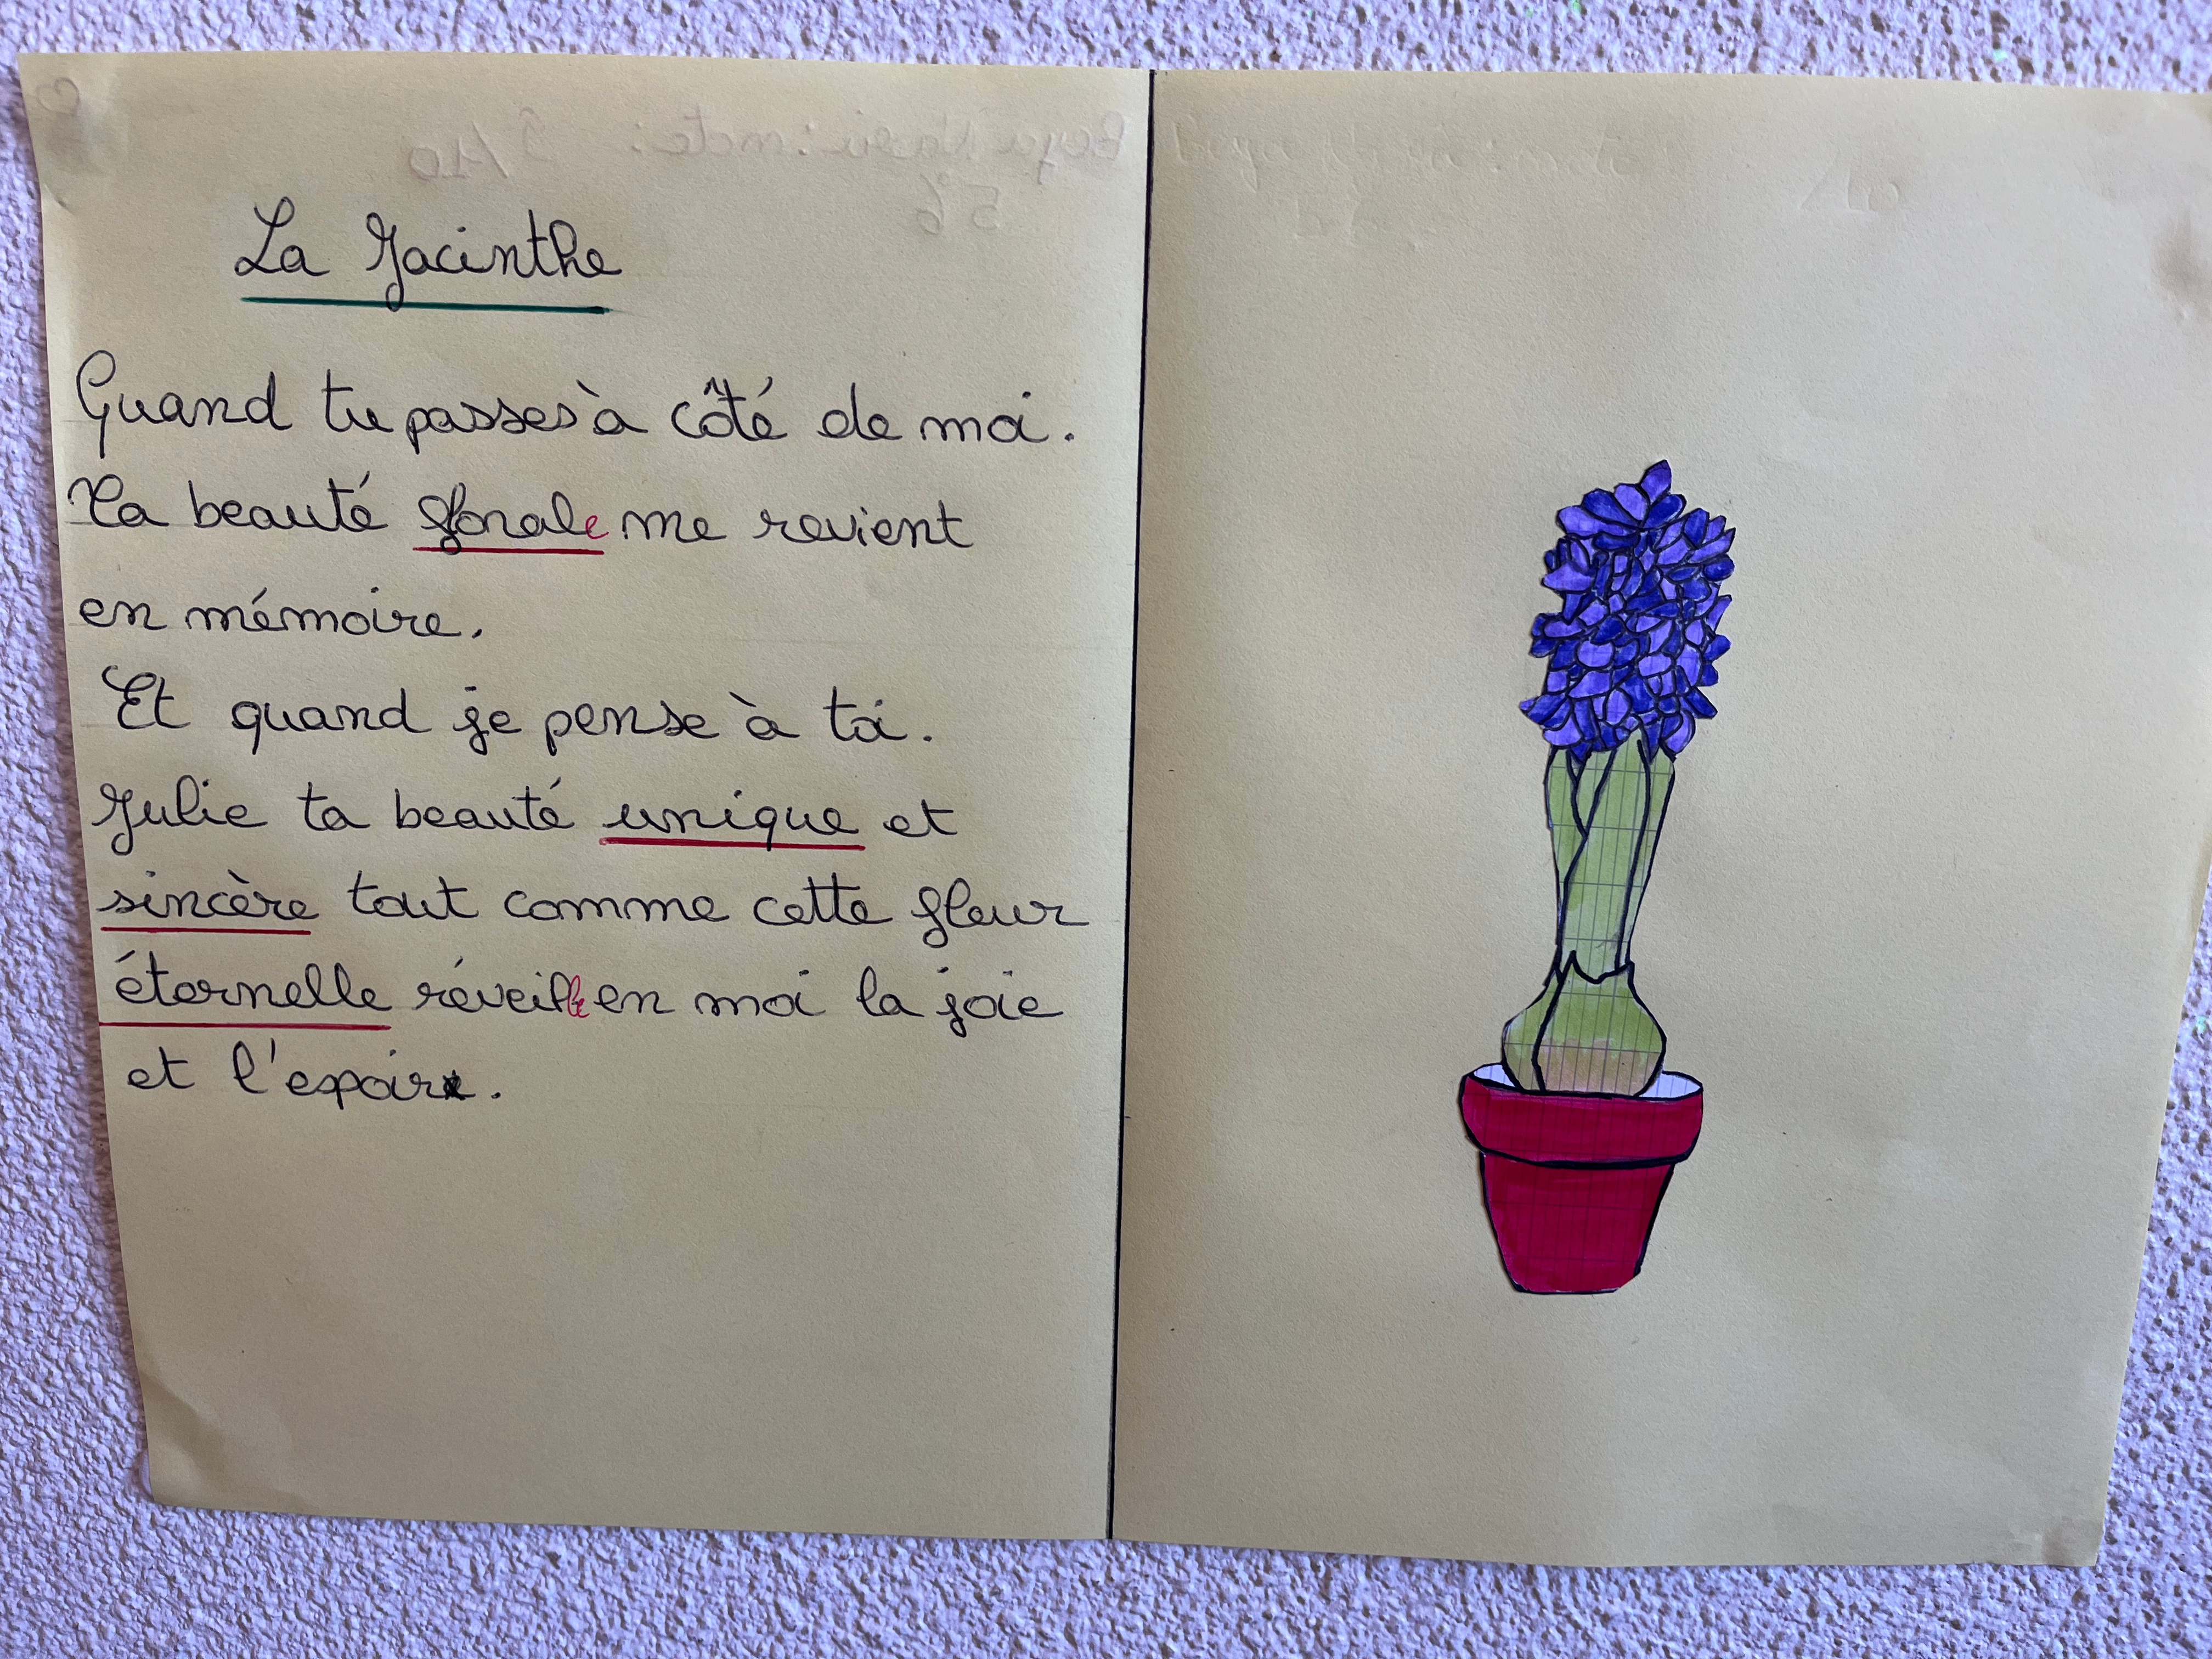 La Jacinthe
Quand tu passes à côté de moi.
Ta beauté florale me revient
en mémoire.
Et quand je pense à toi.
Julie ta beauté unique et
sincère tout comme cette fleur
éternelle réveille en moi la joie
et l'espoir.